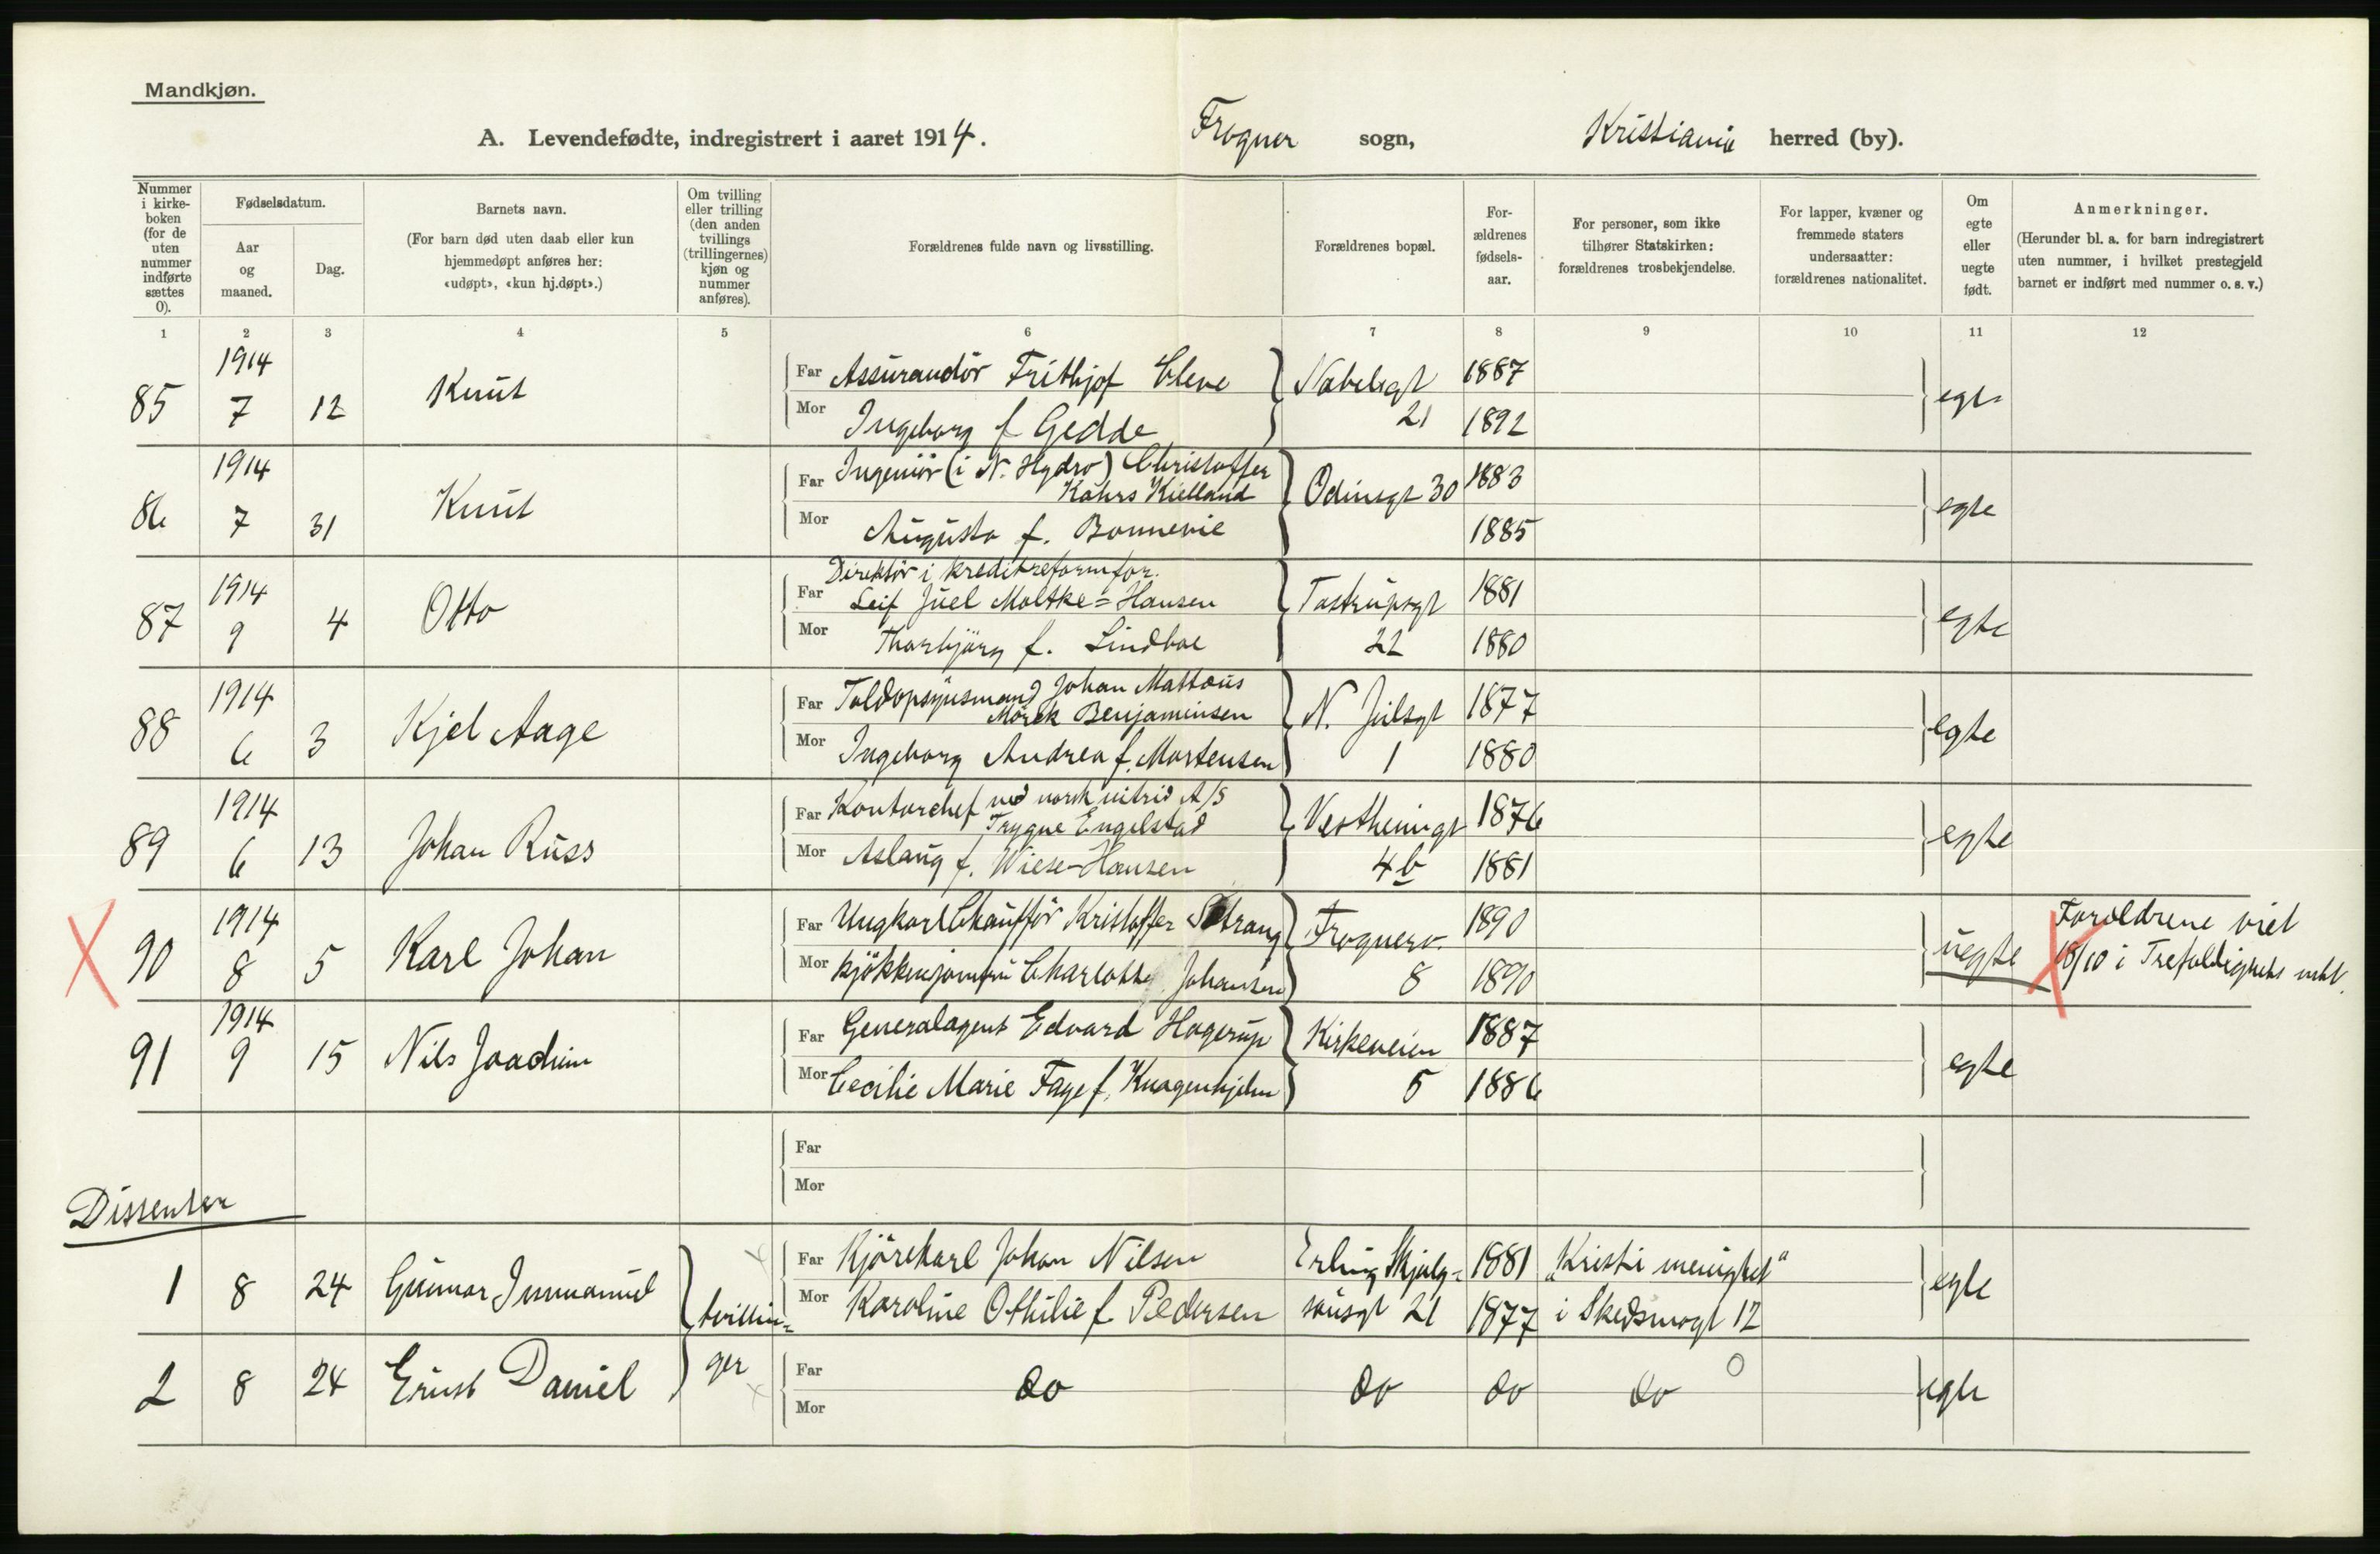 Mandkjøn.
A. Levendefødte, indregistrert i aaret 1914. Frogner sogn, Kristiania herred (by).
Nummer i kirke-boken (for de uten nummer indførte sættes 0).
Fødselsdatum.
Aar og maaned.
Dag.
Barnets navn.
(For barn død uten daab eller kun hjemmedøpt anføres her: «udøpt», «kun hj.døpt».)
Om tvilling eller trilling (den anden tvillings (trillingernes) kjøn og nummer anføres).
Forældrenes fulde navn og livsstilling.
Forældrenes bopæl.
For-ældrenes fødsels-aar.
For personer, som ikke tilhører Statskirken: forældrenes trosbekjendelse.
For lapper, kvæner og fremmede staters undersaatter: forældrenes nationalitet.
Om egte eller uegte født.
Anmerkninger.
(Herunder bl. a. for barn indregistrert uten nummer, i hvilket prestegjeld barnet er indført med nummer o. s. v.)
1 2 3 4 5 6 7 8 9 10 11 12
85 1914 7 12 Knut
Far Assurandör Frithjof Cleve Nobelsgt 1887 egte
Mor Ingeborg f Gedde 21 1892
86 1914 7 31 Knut
Far Ingeniör (i N. Hydro) Christoffer
Kahrs Kielland Odinsgt 30 1883 egte
Mor Augusta f. Bonnevie 1885
87 1914 9 4 Otto
Direktör i kreditreformfor.
Far Leif Juel Moltke=Hansen Tostrupsgt 1881 egte
Mor Thorbjörg f. Lindboe 22 1880
88 1914 6 3 Kjel Aage
Far Toldopsynsmand Johan Mattæus
Mörck Benjaminsen N. Julsgt 1877 egte
Mor Ingeborg Andrea f. Mortensen 1 1880
89 1914 6 13 Johan Russ
Far Kontorchef ved norsk nitrid A/S
Trygve Engelstad Vestheimgt 1876 egte
Mor Aslaug f. Wiese-Hansen 4b 1881
90 1914 8 5 Karl Johan
Far Ungkarl Chaufför Kristoffer Strang Frognerv. 1890 uegte Forældrene viet
Mor Kjökkenjomfru Charlotte Johansen 8 1890 18/10 i Trefoldighets
91 1914 9 15 Nils Joachim
Far Generalagent Edvard Hagerup Kirkeveien 1887 egte
Mor Cecilie Marie Faye f. Knagenhjelm 5 1886
Far
Mor
Dissenter
1 8 24 Gunnar Immanuel tvillin=
Far Kjörekarl Johan Nilsen Erling Skjalg= 1881 „Kristi menighet" egte
Mor Karoline Othilie f. Pedersen sönsgt 21 1877 i Skedsmogt 12
2 8 24 Ernst Daniel ger
Far do do do do egte
Mor